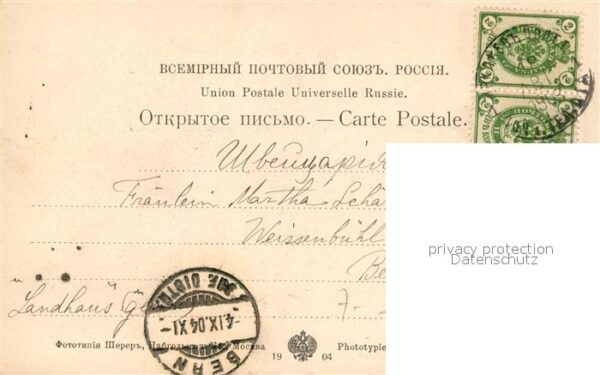 ВСЕМІРНЫЙ ПОЧТОВЫЙ СОЮЗЪ. РОССІЯ.
Union Postale Universelle Russie.
Открытое письмо. — Carte Postale.
Швейцарія
Fräulein Martha Schä
Weissenbühl
privacy protection
Datenschutz
Be
Landhaus
BRF. DISTR.
-4.IX.04.XI-
BERN
Фототипія Шереръ, Набгольцъ и Ко Москва
19 04
Phototypie
2 2